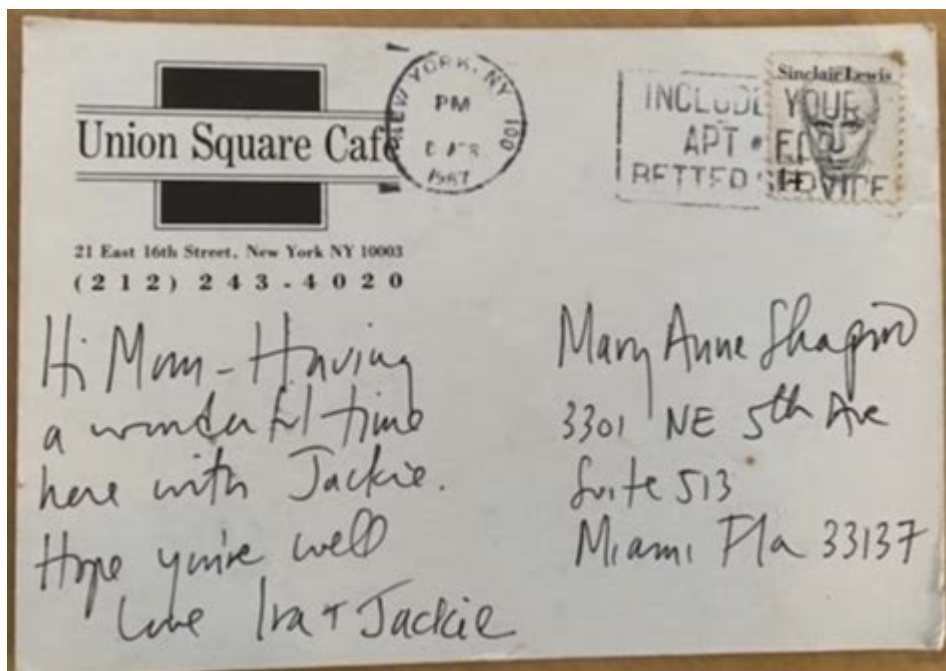 Union Square Cafe
21 East 16th Street, New York NY 10003
(212) 243-4020
NEW YORK, NY 100
PM
APR
1987
INCLUDE YOUR
APT # FOR
BETTER SERVICE
Sinclair Lewis
14
Hi Mom - Having
a wonderful time
here with Jackie.
Hope you're well
Love Ira + Jackie
Mary Anne Shapiro
3301 NE 5th Ave
Suite 513
Miami Fla 33137